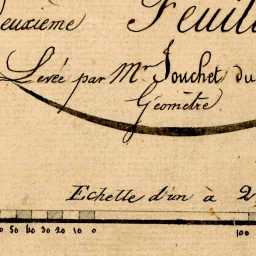 euxième Feuil
Levée par Mr Jouchet du
Géomètre
Echelle d'un à 2
0 50 40 30 20 10 0 100